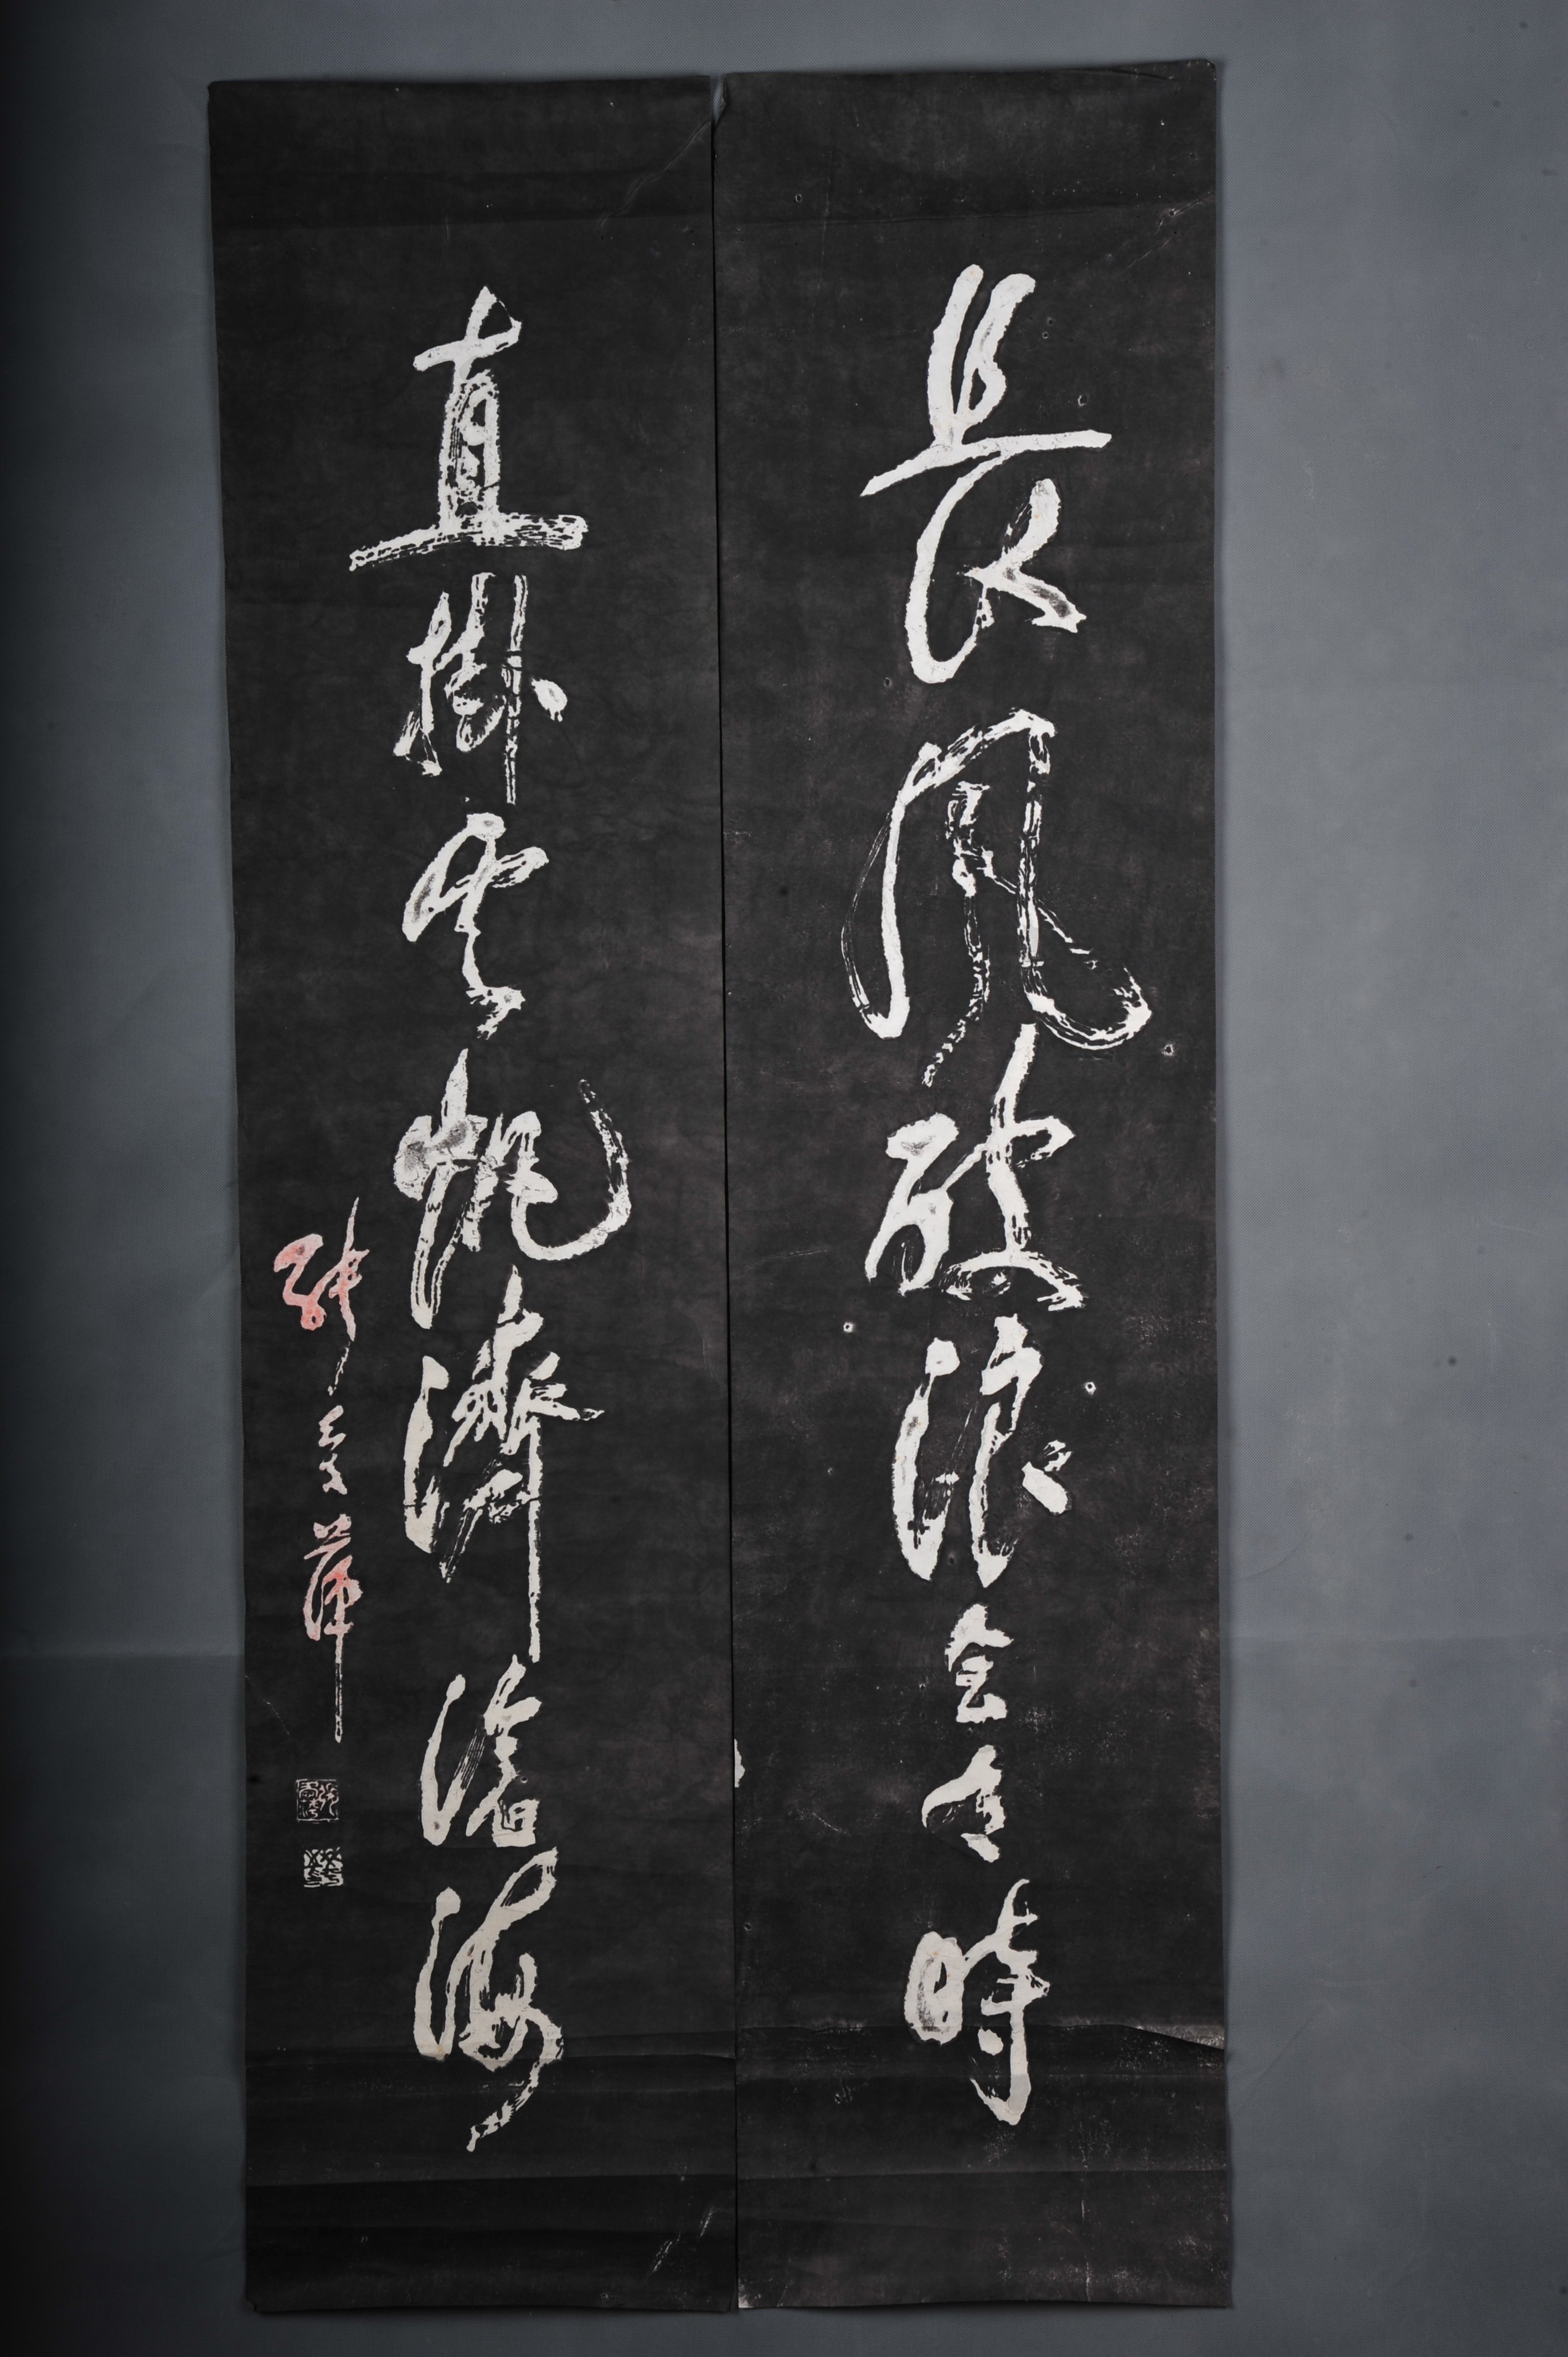 長風破浪會有時
直掛雲帆濟滄海
張愛萍